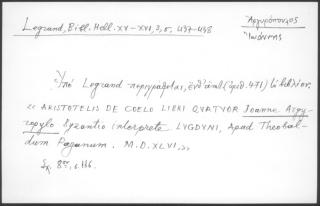 Legrand, Bibl. Hell. XV-XVI, 3, σ. 437-438
Ἀργυρόπουλος
Ἰωάννης
Ὑπὸ Legrand περιγράφεται, ἐνθ' ἀνωτ. (ἀριθ. 471) τὸ βιβλίον.
« ARISTOTELIS DE COELO LIBRI QVATVOR Joanne Argy-
ropylo Byzantio interprete. LVGDVNI, Apud Theobal-
dum Paganum. M.D.XLVI,»
Σχ. 8ον, σ. 166.